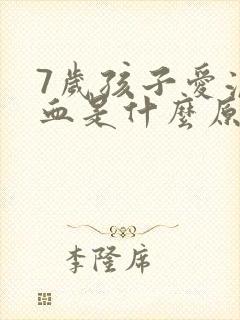 7歲孩子愛
血是什麼原
李隆席